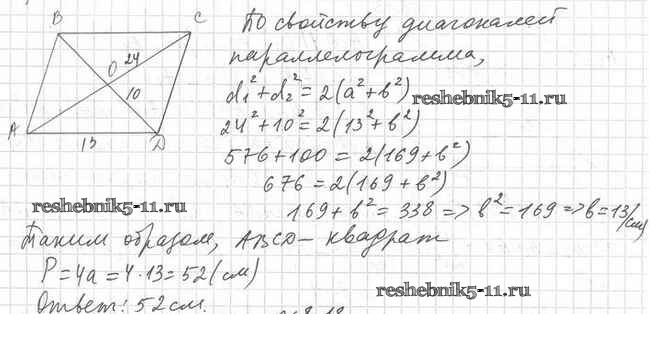 B C
24
O
10
A D
13
По свойству диагоналей
параллелограмма,
d₁² + d₂² = 2(a² + b²)
reshebnik5-11.ru
24² + 10² = 2(13² + b²)
576 + 100 = 2(169 + b²)
676 = 2(169 + b²)
reshebnik5-11.ru
169 + b² = 338 => b² = 169 => b = 13 (см)
Таким образом, ABCD - квадрат
P = 4a = 4 · 13 = 52 (см)
reshebnik5-11.ru
Ответ: 52 см.